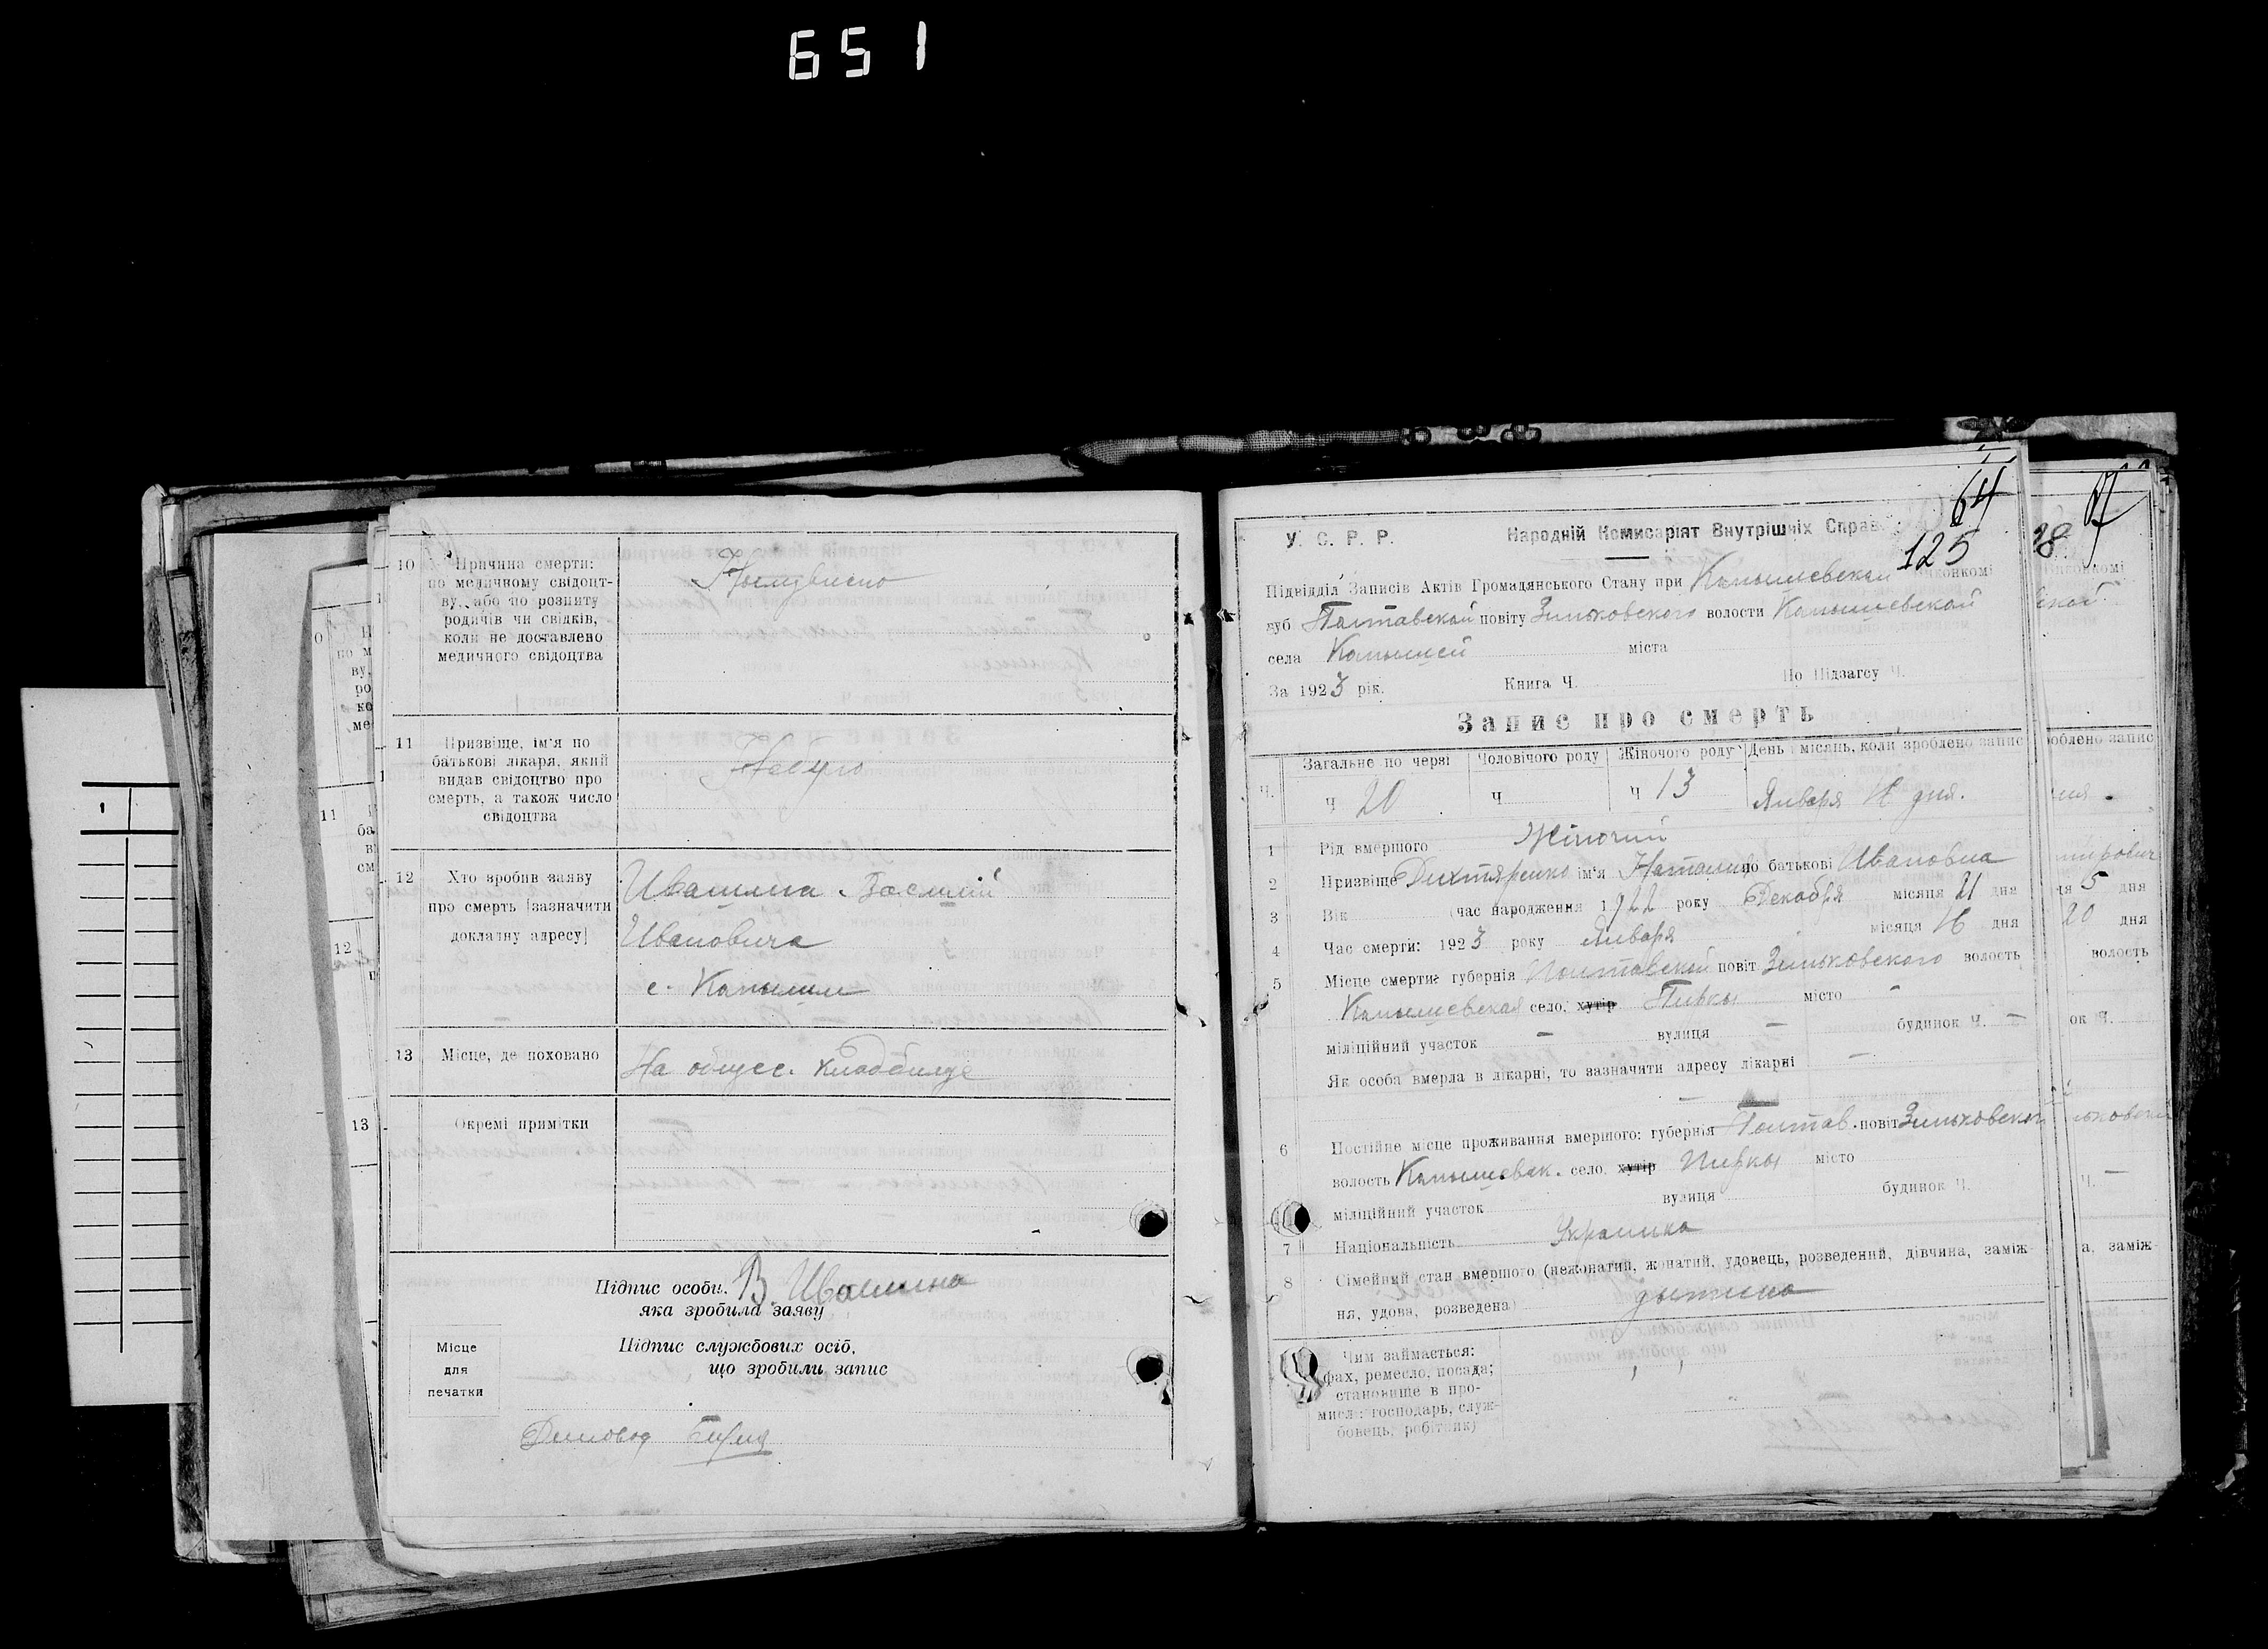 651
10 Причина смерти:
по медичному свідоцт-
ву, або по розпиту
родичів чи свідків,
коли не доставлено
медичного свідоцтва
11 Призвіще, ім'я по
батькові лікаря, який
видав свідоцтво про
смерть, а також число
свідоцтва
12 Хто зробив заяву
про смерть (зазначити
докладну адресу)
Ивашина Василий
Ивановича
с. Камыши
13 Місце, де поховано
На общес. кладбище
Окремі примітки
Підпис особи, В. Ивашина
яка зробила заяву
Підпис службових осіб,
що зробили запис
Місце
для
печатки
Диловод
64
125
У. С. Р. Р. Народній Комисаріят Внутрішніх Справ
Підвідділ Записів Актів Громадянського Стану при Камышевской
губ Полтавской повіту Зиньковского волости Камышевской
села Камышей міста
За 1923 рік. Книга Ч. По Підзагсу Ч.
Запис про смерть
Ч. Загальне по черзі Чоловічого роду Жіночого роду День і місяць, коли зроблено запис
Ч 20 Ч Ч 13 Января 16 дня.
1 Рід вмершого Жіночий
2 Призвіще Дихтяренко ім'я Наталия по батькові Ивановна
3 Вік (час народження 1922 року Декабря місяця 21 дня
4 Час смерти: 1923 року Января місяця 16 дня
5 Місце смерти: губернія Полтавской повіт Зиньковского волость
Камышевская село, хутір Пирки місто -
міліційний участок - вулиця - будинок Ч. -
Як особа вмерла в лікарні, то зазначити адресу лікарні -
6 Постійне місце проживання вмершого: губернія Полтав. повіт Зиньковског
волость Камышевск. село, хутір Пирки місто
міліційний участок вулиця будинок Ч.
7 Національність Украинка
8 Сімейний стан вмершого (нежонатий, жонатий, удовець, розведений, дівчина, заміж-
ня, удова, розведена) дытина
9 Чим займається:
фах, ремесло, посада;
становище в про-
мислі: господарь, служ-
бовець, робітник)